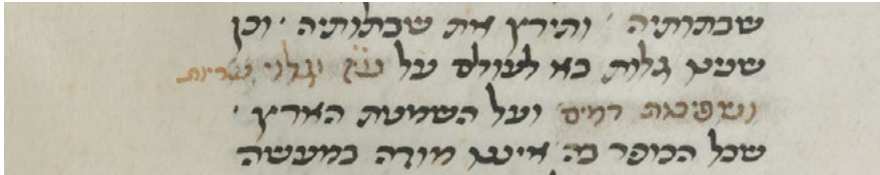 שבתותיה ותירץ את שבתותיה וכן
שנינו גלות בא לעולם על ע״ז וגלוי עריות
ושפיכות דמים ועל השמטת הארץ
שכל הכופר בה אינו מודה במעשה